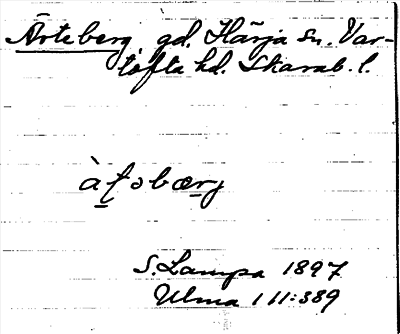 Ärteberg gd. Härja sn. Var-
tofta hd. Skarab. l.
S. Lampa 1897
Ulma 111:389